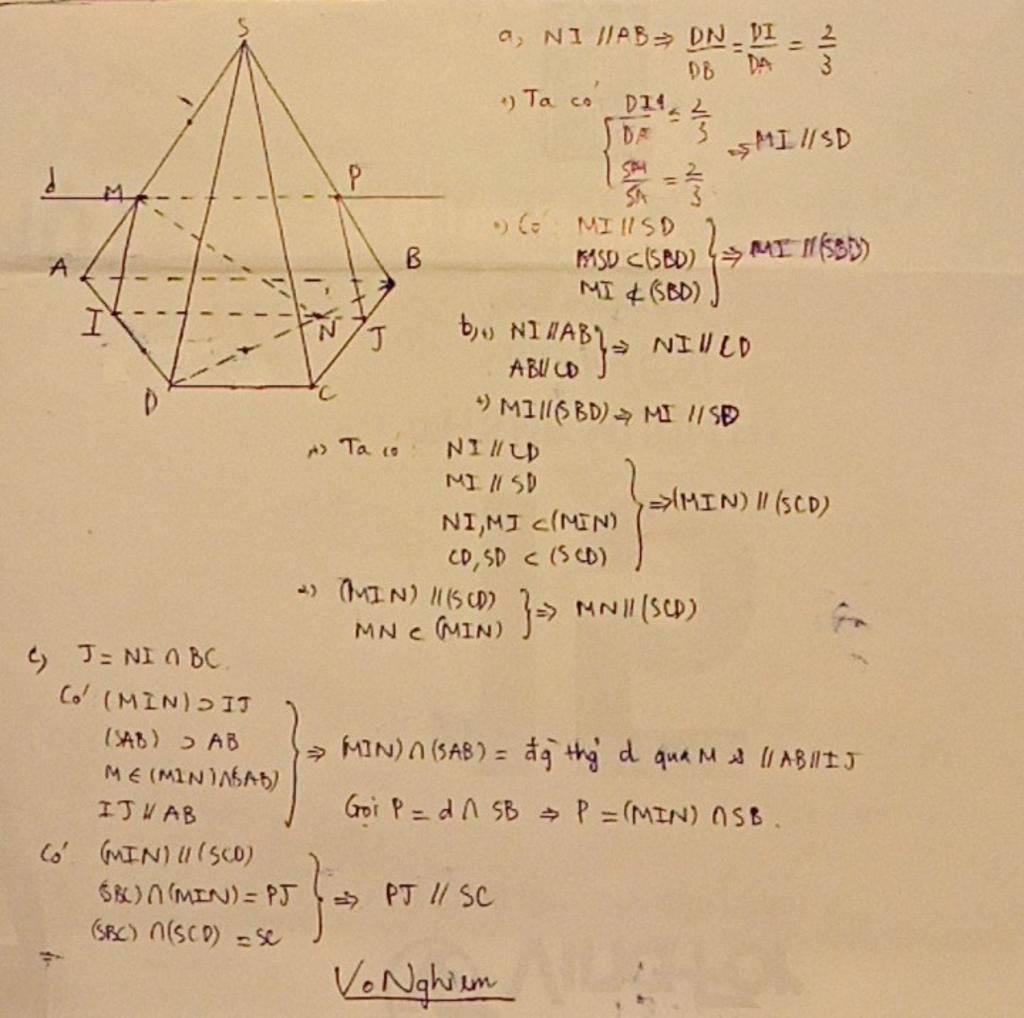 S
d
M
P
A
B
I
N
J
D
C
a, NI // AB ⇒ DN/DB = DI/DA = 2/3
+) Ta có DI/DA = 2/3
SM/SA = 2/3
⇒ MI // SD
+) Có MI // SD
SD ⊂ (SBD)
MI ⊄ (SBD)
⇒ MI // (SBD)
b, +) NI // AB
AB // CD
⇒ NI // CD
+) MI // (SBD) ⇒ MI // SD
+) Ta có NI // CD
MI // SD
NI, MI ⊂ (MIN)
CD, SD ⊂ (SCD)
⇒ (MIN) // (SCD)
+) (MIN) // (SCD)
MN ⊂ (MIN)
⇒ MN // (SCD)
c, J = NI ∩ BC.
Có (MIN) ⊃ IJ
(SAB) ⊃ AB
M ∈ (MIN) ∩ (SAB)
IJ // AB
⇒ (MIN) ∩ (SAB) = đg thg d qua M & // AB // IJ
Gọi P = d ∩ SB ⇒ P = (MIN) ∩ SB.
Có (MIN) // (SCD)
(SBC) ∩ (MIN) = PJ
(SBC) ∩ (SCD) = SC
⇒ PJ // SC
Vo Nghiem